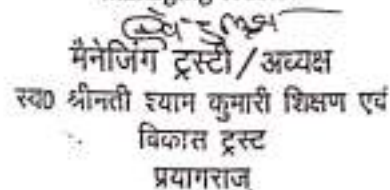 मैनेजिंग ट्रस्टी/अध्यक्ष
स्व0 श्रीमती श्याम कुमारी शिक्षण एवं
विकास ट्रस्ट
प्रयागराज